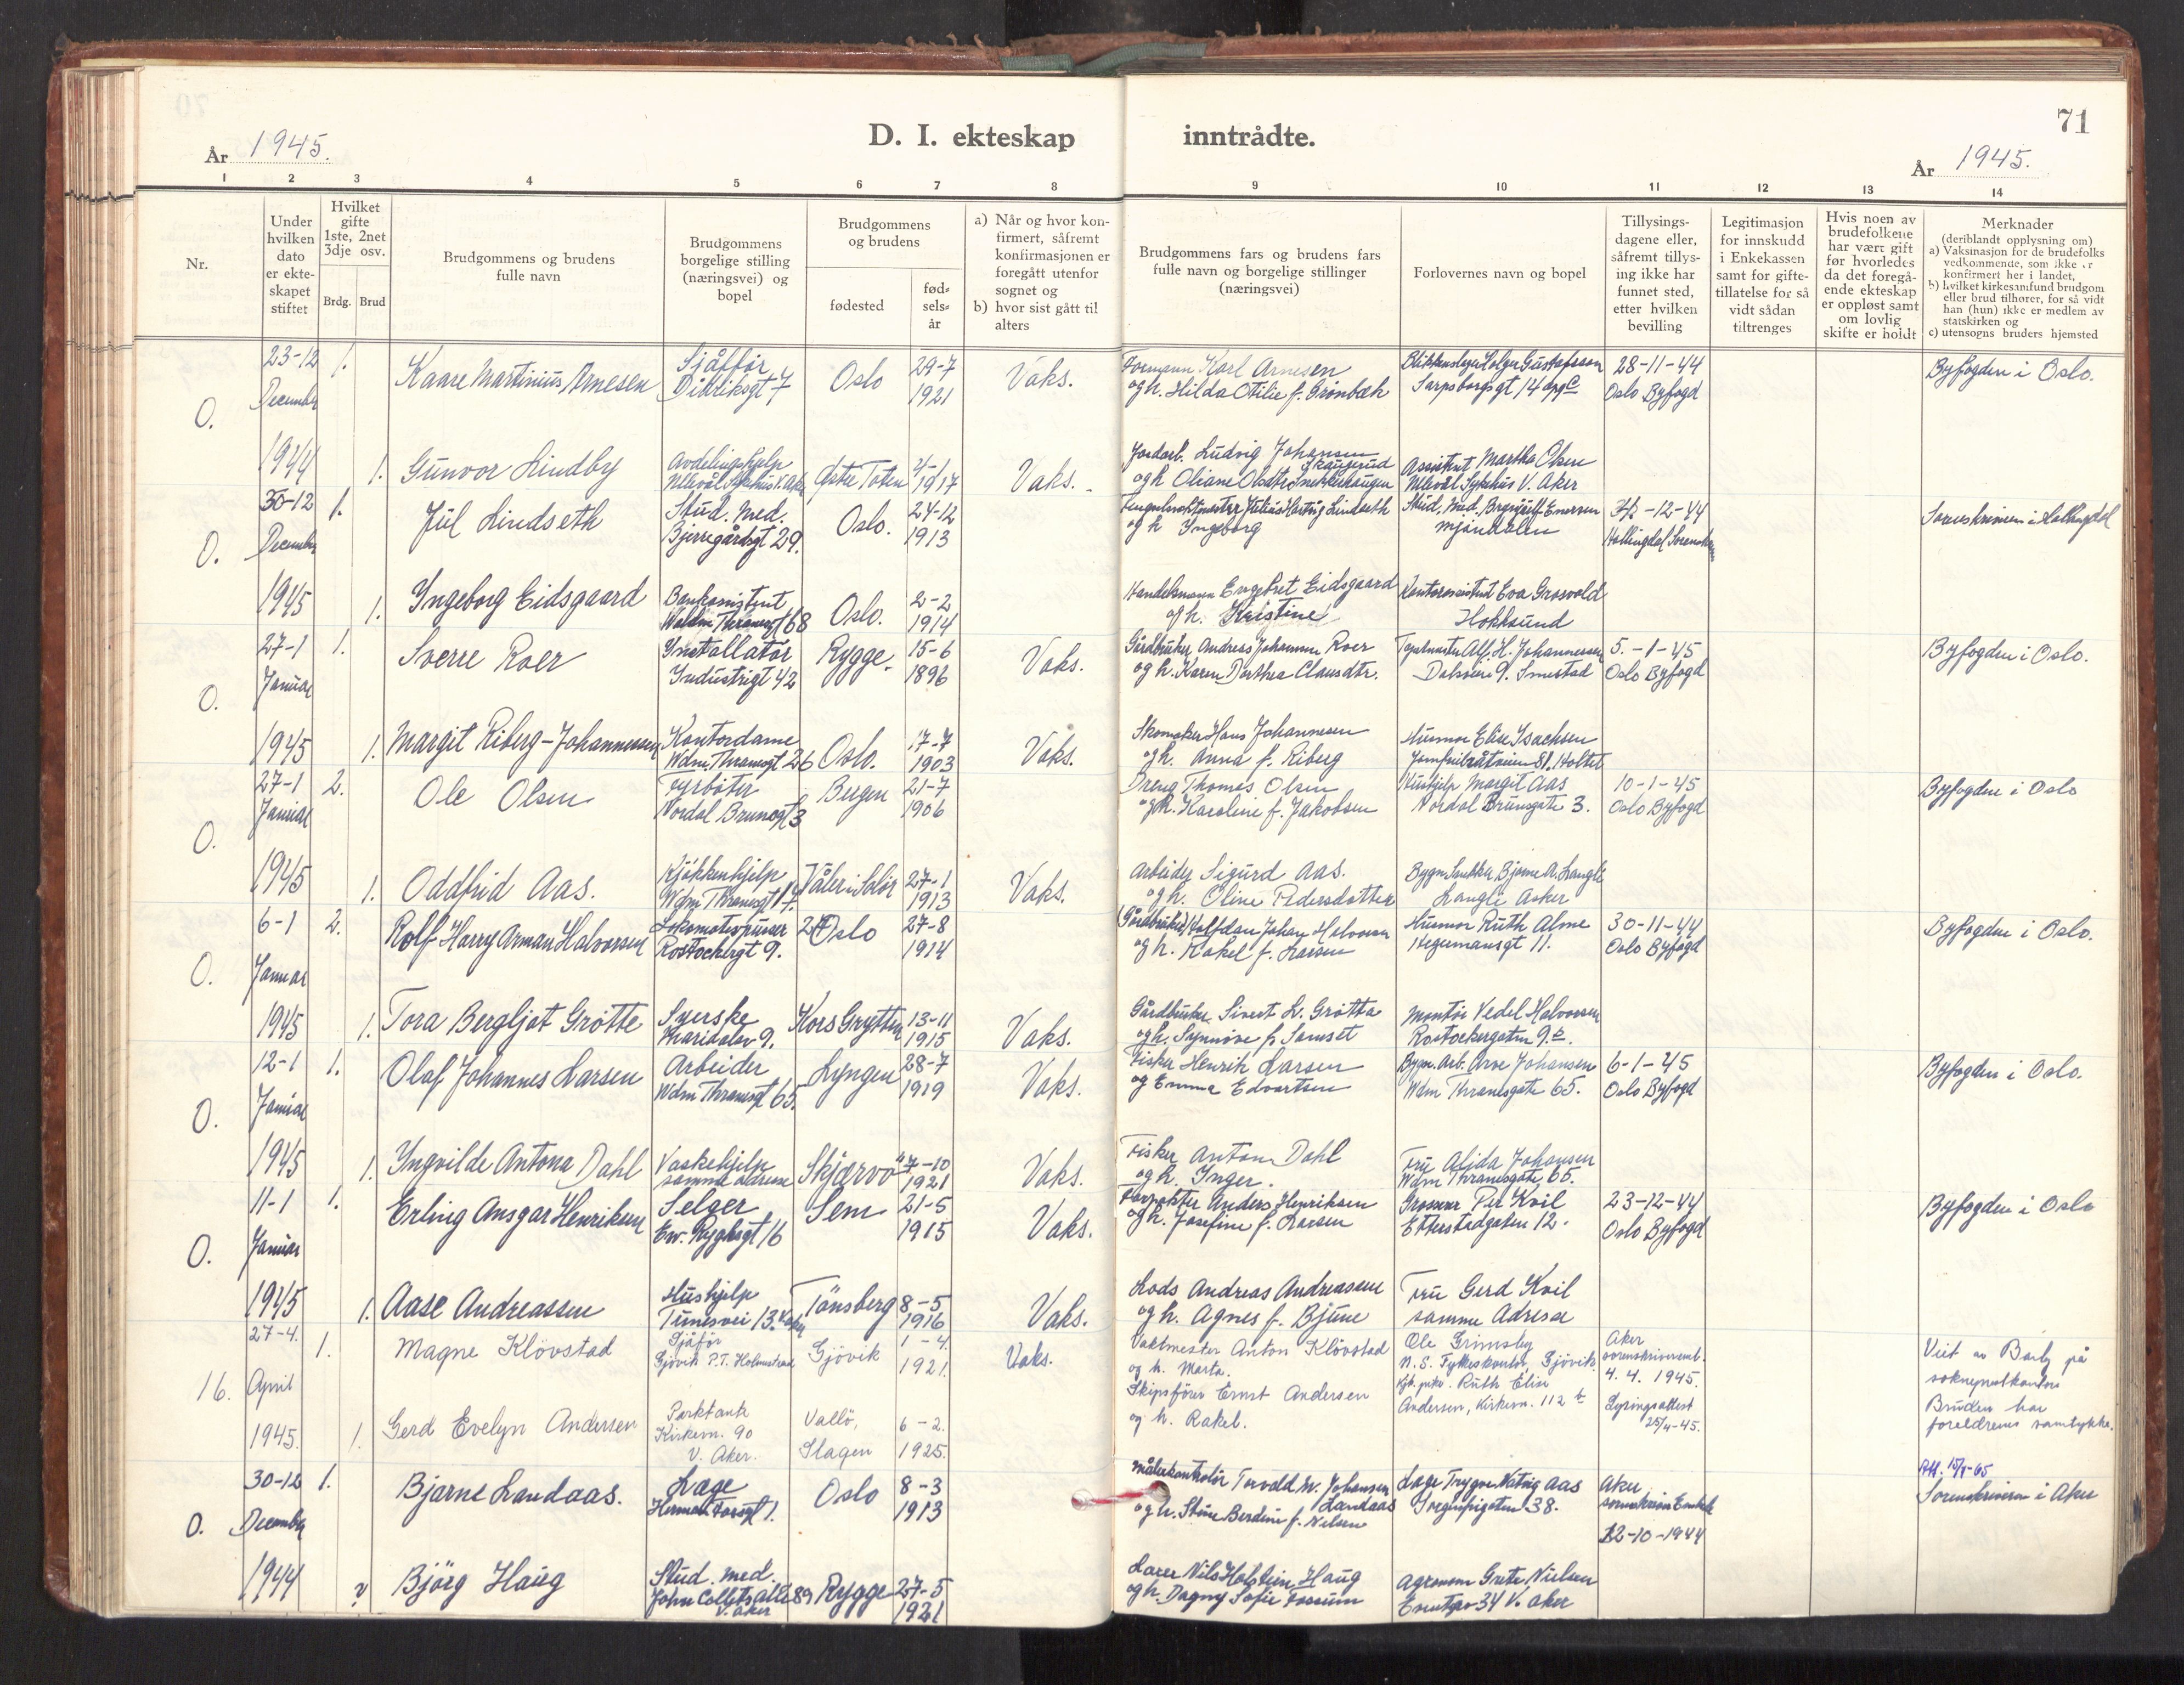 71
År 1945.
D. I. ekteskap inntrådte.
År 1945.
1 2 3 4 5 6 7 8 9 10 11 12 13 14
Nr.
Under hvilken dato er ekteskapet stiftet
Hvilket gifte 1ste, 2net 3dje osv.
Brdg. Brud
Brudgommens og brudens fulle navn
Brudgommens borgelige stilling (næringsvei) og bopel
Brudgommens og brudens
fødested
fødselsår
a) Når og hvor konfirmert, såfremt konfirmasjonen er foregått utenfor sognet og
b) hvor sist gått til alters
Brudgommens fars og brudens fars fulle navn og borgelige stillinger (næringsvei)
Forlovernes navn og bopel
Tillysingsdagene eller, såfremt tillysing ikke har funnet sted, etter hvilken bevilling
Legitimasjon for innskudd i Enkekassen samt for giftetillatelse for så vidt sådan tiltrenges
Hvis noen av brudefolkene har vært gift før hvorledes da det foregående ekteskap er oppløst samt om lovlig skifte er holdt
Merknader
(deriblandt opplysning om)
a) Vaksinasjon for de brudefolks vedkommende, som ikke er konfirmert her i landet,
b) hvilket kirkesamfund brudgom eller brud tilhører, for så vidt han (hun) ikke er medlem av statskirken og
c) utensogns bruders hjemsted
O. 23-12 December 1944
1. Kaare Martinius Arnesen Sjåffør Didriksgt 7 Oslo 29-7 1921 Vaks.
Formann Karl Arnesen og h. Hilda Otilie f. Grønbæk
Blikkenslager Holger Gustafsson Sarpsborggt 14 opg C
28-11-44 Oslo Byfogd
Byfogden i Oslo.
1. Gunvor Lindby Avdelingshjelp Ullevål Sykehus V. Aker Østre Toten 4-1 1917 Vaks.
Jordarb. Ludvig Johansen Skaugerud og h Oliane Olsdtr Snekkerhaugen
Assistent Martha Olsen Ullevål Sykehus V. Aker
O. 30-12 December 1945
1. Jul Lindseth Stud. Med. Bjerregårdsgt 29. Oslo. 24-12 1913
og h Ingeborg
Mjøndalen
-12-44 Hallingdal Sorenskr
Sorenskriveren i Hallingdal
1. Ingeborg Eidsgaard Bankassistent Waldm Thranesgt 68 Oslo. 2-2 1914
Handelsmann Engebret Eidsgaard og h. Kristine
Kontorassistent Eva Grosvold Hokksund
O. 27-1 Januar 1945
1. Sverre Roer Installatør Industrigt 42 Rygge. 15-6 1896 Vaks.
Gårdbruker Andreas Johannsen Roer og h. Karen Dorthea Clausdtr.
Alf. H. Johannessen Dalsvei 9. Smestad
5.-1-45 Oslo Byfogd
Byfogden i Oslo.
1. Margit Riberg-Johannessen Kontordame Wdm. Thranesgt 26 Oslo. 17-7 1903 Vaks.
Skomaker Hans Johannesen og h. Anna f. Riberg
Husmor Elise Isachsen Jomfrubråtveien 81. Holtet
O. 27-1 Januar 1945
2. Ole Olsen Fyrbøter Nordal Brunsgt 3 Bergen 21-7 1906
Dreng Thomas Olsen og h. Karoline f. Jakobsen
Hushjelp Margit Aas Nordal Brunsgate 3.
10-1-45 Oslo Byfogd
Byfogden i Oslo
1. Oddfrid Aas. Kjøkkenhjelp Wdm Thranesgt 17. Våler i Solør 27-1 1913 Vaks.
Arbeider Sigurd Aas. og h. Oline Pedersdotter
Bygn.Snekker Bjarne A. Langli Langli Asker
O. 6-1 Januar 1945
2. Rolf Harry Arman Halvorsen Lokomotivpusser Rostockergt 9. Oslo 27-8 1914
(Gårdbruker) Halfdan Johan Halvorsen og h. Rakel f. Larsen
Husmor Ruth Alme Hegermansgt 11.
30-11-44 Oslo Byfogd
Byfogden i Oslo.
1. Tora Bergljot Grøtte Syerske Maridalsv 9. Kors Grytten 13-11 1915 Vaks.
Gårdbruker Sivert L. Grøtta og h. Synnøve f. Samset
Montør Vedel Halvorsen Rostockergaten 9.
O. 12-1 Januar 1945
1. Olaf Johannes Larsen Arbeider Wdm Thranesgt 65. Lyngen 28-7 1919 Vaks.
Fisker Henrik Larsen og Emma Edvartsen
Bygn. Arb. Arve Johansen Wdm Thranesgate 65.
6-1-45 Oslo Byfogd
Byfogden i Oslo.
1. Ingvilde Antona Dahl Vaskehjelp samme adresse Skjærvø 7-10 1921 Vaks.
Fisker Anton Dahl og h. Inger.
Fru Alida Johansen Wdm Thranesgate 65.
O. 11-1 Januar 1945
1. Erling Ansgar Henriksen Selger Ew. Ryghsgt 16 Sem 21-5 1915 Vaks.
Forpakter Anders Henriksen og h. Josefine f. Larsen
Grosserer Per Kvil Etterstadgaten 12.
23-12-44 Oslo Byfogd
Byfogden i Oslo
1. Aase Andreassen Hushjelp Tunesvei 13. V. Aker Tönsberg 8-5 1916 Vaks.
Lods Andreas Andreassen og h. Agnes f. Bjune
Fru Gerd Kvil samme Adresse
16. 27-4. April 1945.
1. Magne Klövstad Sjåfør Gjövik P.T. Holmestrand Gjövik 1-4. 1921. Vaks.
Vaktmester Anton Klövstad og h. Marta.
Ole Grimsby N.S. Fylkeskontor, Gjövik
Aker sorenskriveremb. 4. 4. 1945. Lysingsattest 25/4-45.
Viet av Barly på sokneprestkontoret Bruden har foreldrenes samtykke.
1. Gerd Evelyn Andersen Parktante Kirkevn. 90 V. Aker. Vallö, Slagen 6-2. 1925.
Skipsfører Ernst Andersen og h. Rakel.
Ruth Elise Andersen, Kirkevn. 112 b
O. 30-12 December 1944
1. Bjarne Landaas. Læge Herman Fossgt 1. Oslo 8-3 1913
Målerkontrolør Torvald M. Johansen Landaas og h. Stine Berdine f. Nilsen
Læge Trygve Natvig Aas Sorgenfrigaten 38.
Aker sorenskriver Embete 12-10-1944
Sorenskriveren i Aker
v Björg Haug Stud. med. John Colletts alle 89 V. Aker Rygge 27-5 1921
Lærer Nils Holstein Haug og h. Dagny Sofie Fossum
Agronom Grete Nielsen 34 V. Aker